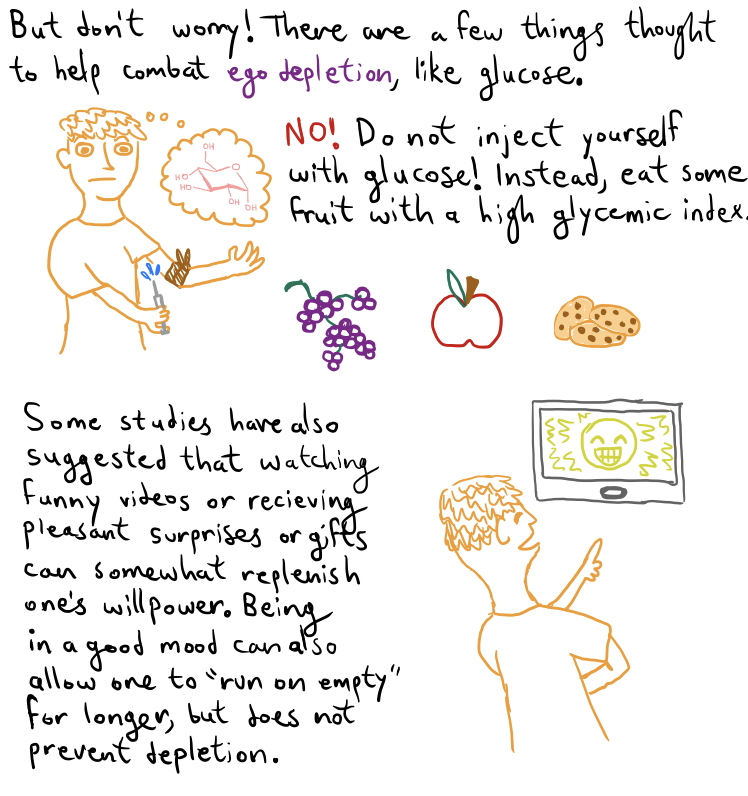 But don't worry! There are a few things thought
to help combat ego depletion, like glucose.
NO! Do not inject yourself
with glucose! Instead, eat some
fruit with a high glycemic index.
OH
HO
HO
O
OH
OH
Some studies have also
suggested that watching
funny videos or recieving
pleasant surprises or gifts
can somewhat replenish
one's willpower. Being
in a good mood can also
allow one to "run on empty"
for longer, but does not
prevent depletion.